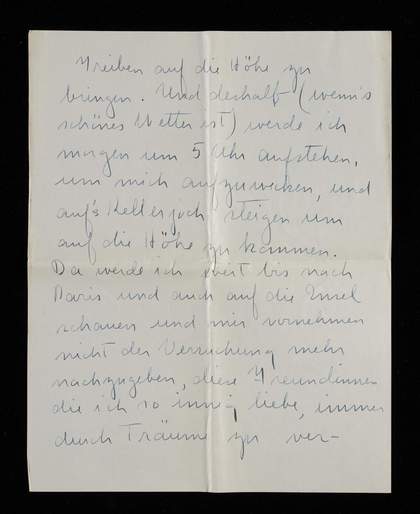 Treiben auf die Höhe zu
bringen. Und deshalb (wenn's
schönes Wetter ist) werde ich
morgen um 5 Uhr aufstehen,
um mich aufzuwecken, und
auf's Kellerjoch steigen um
auf die Höhe zu kommen.
Da werde ich weit bis nach
Paris und auch auf die Insel
schauen und mir vornehmen
nicht der Versuchung mehr
nachzugeben, diese Freundinnen
die ich so innig liebe, immer
durch Träume zu ver-